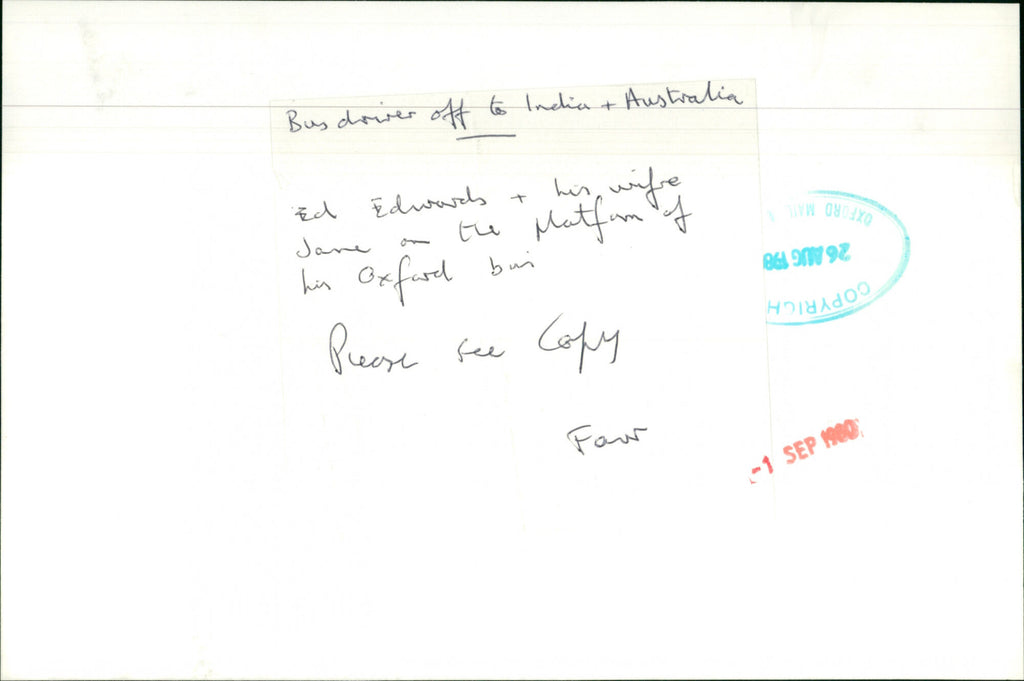 Bus driver off to India + Australia
Ed Edwards + his wife
Jane on the Platform of
his Oxford bus
Please see Copy
Farr
OXFORD MAIL
26 AUG 198
COPYRIGH
-1 SEP 1980